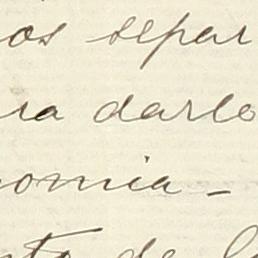 os separ
ra darlo
nomia –
nto de l